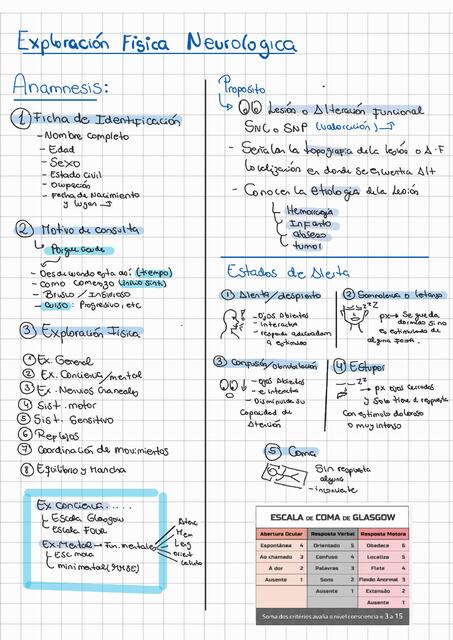 Exploración Física Neurologica
Anamnesis:
1 Ficha de Identificación
- Nombre completo
- Edad
- Sexo
- Estado civil
- Ocupación
- Fecha de Nacimiento
y lugar
2 Motivo de consulta
Porque acude
- Desde cuando esta así (tiempo)
- Como comenzo (inicio sint)
- Brusco / Insidioso
- curso: Progresivo, etc
3 Exploración Fisica
1 Ex. General
2 Ex. Conciencia/mental
3 Ex. Nervios Craneales
4 Sist. motor
5 Sist. Sensitivo
6 Reflejos
7 Coordinación de movimientos
8 Equilibrio y Marcha
Ex conciencia.....
Escala Glasgow
Escala FOUR
Ex. Mental → Fun. mentales
Esc moca
minimental (MMSE)
Mem
Leng
orient
calculo
Proposito
Lesión o Alteración Funcional
SNC o SNP (valoración)
- Señalar la topografia de la lesión o A.F
Localización en donde se encuentra Alt
- Conocer la etiologia de la lesión
Hemorragia
Infarto
absceso
tumor
Estados de Alerta
1 Alerta/despierto
- Ojos Abiertos
- interactua
- responde adecuadamen
a estimulos
2 Somnolencia o letargo
zzz
px → Se queda
dormido si no
es estimulado de
alguna forma.
3 Confusión/obnubilación
- Ojos Abiertos
- e interactua
- Disminuye su
Capacidad de
Atención
4 Estupor
zz
px ojos cerrados
y solo tiene d respuesta
con estimulo doloroso
o muy intenso
5 Coma
Sin respuesta
alguna
- inconciente
ESCALA DE COMA DE GLASGOW
Abertura Ocular Resposta Verbal Resposta Motora
Espontânea 4 Orientado 5 Obedece 6
Ao chamado 3 Confuso 4 Localiza 5
À dor 2 Palavras 3 Flete 4
Ausente 1 Sons 2 Flexão Anormal 3
Ausente 1 Extensão 2
Ausente 1
Soma dos critérios avalia o nível consciência = 3 a 15